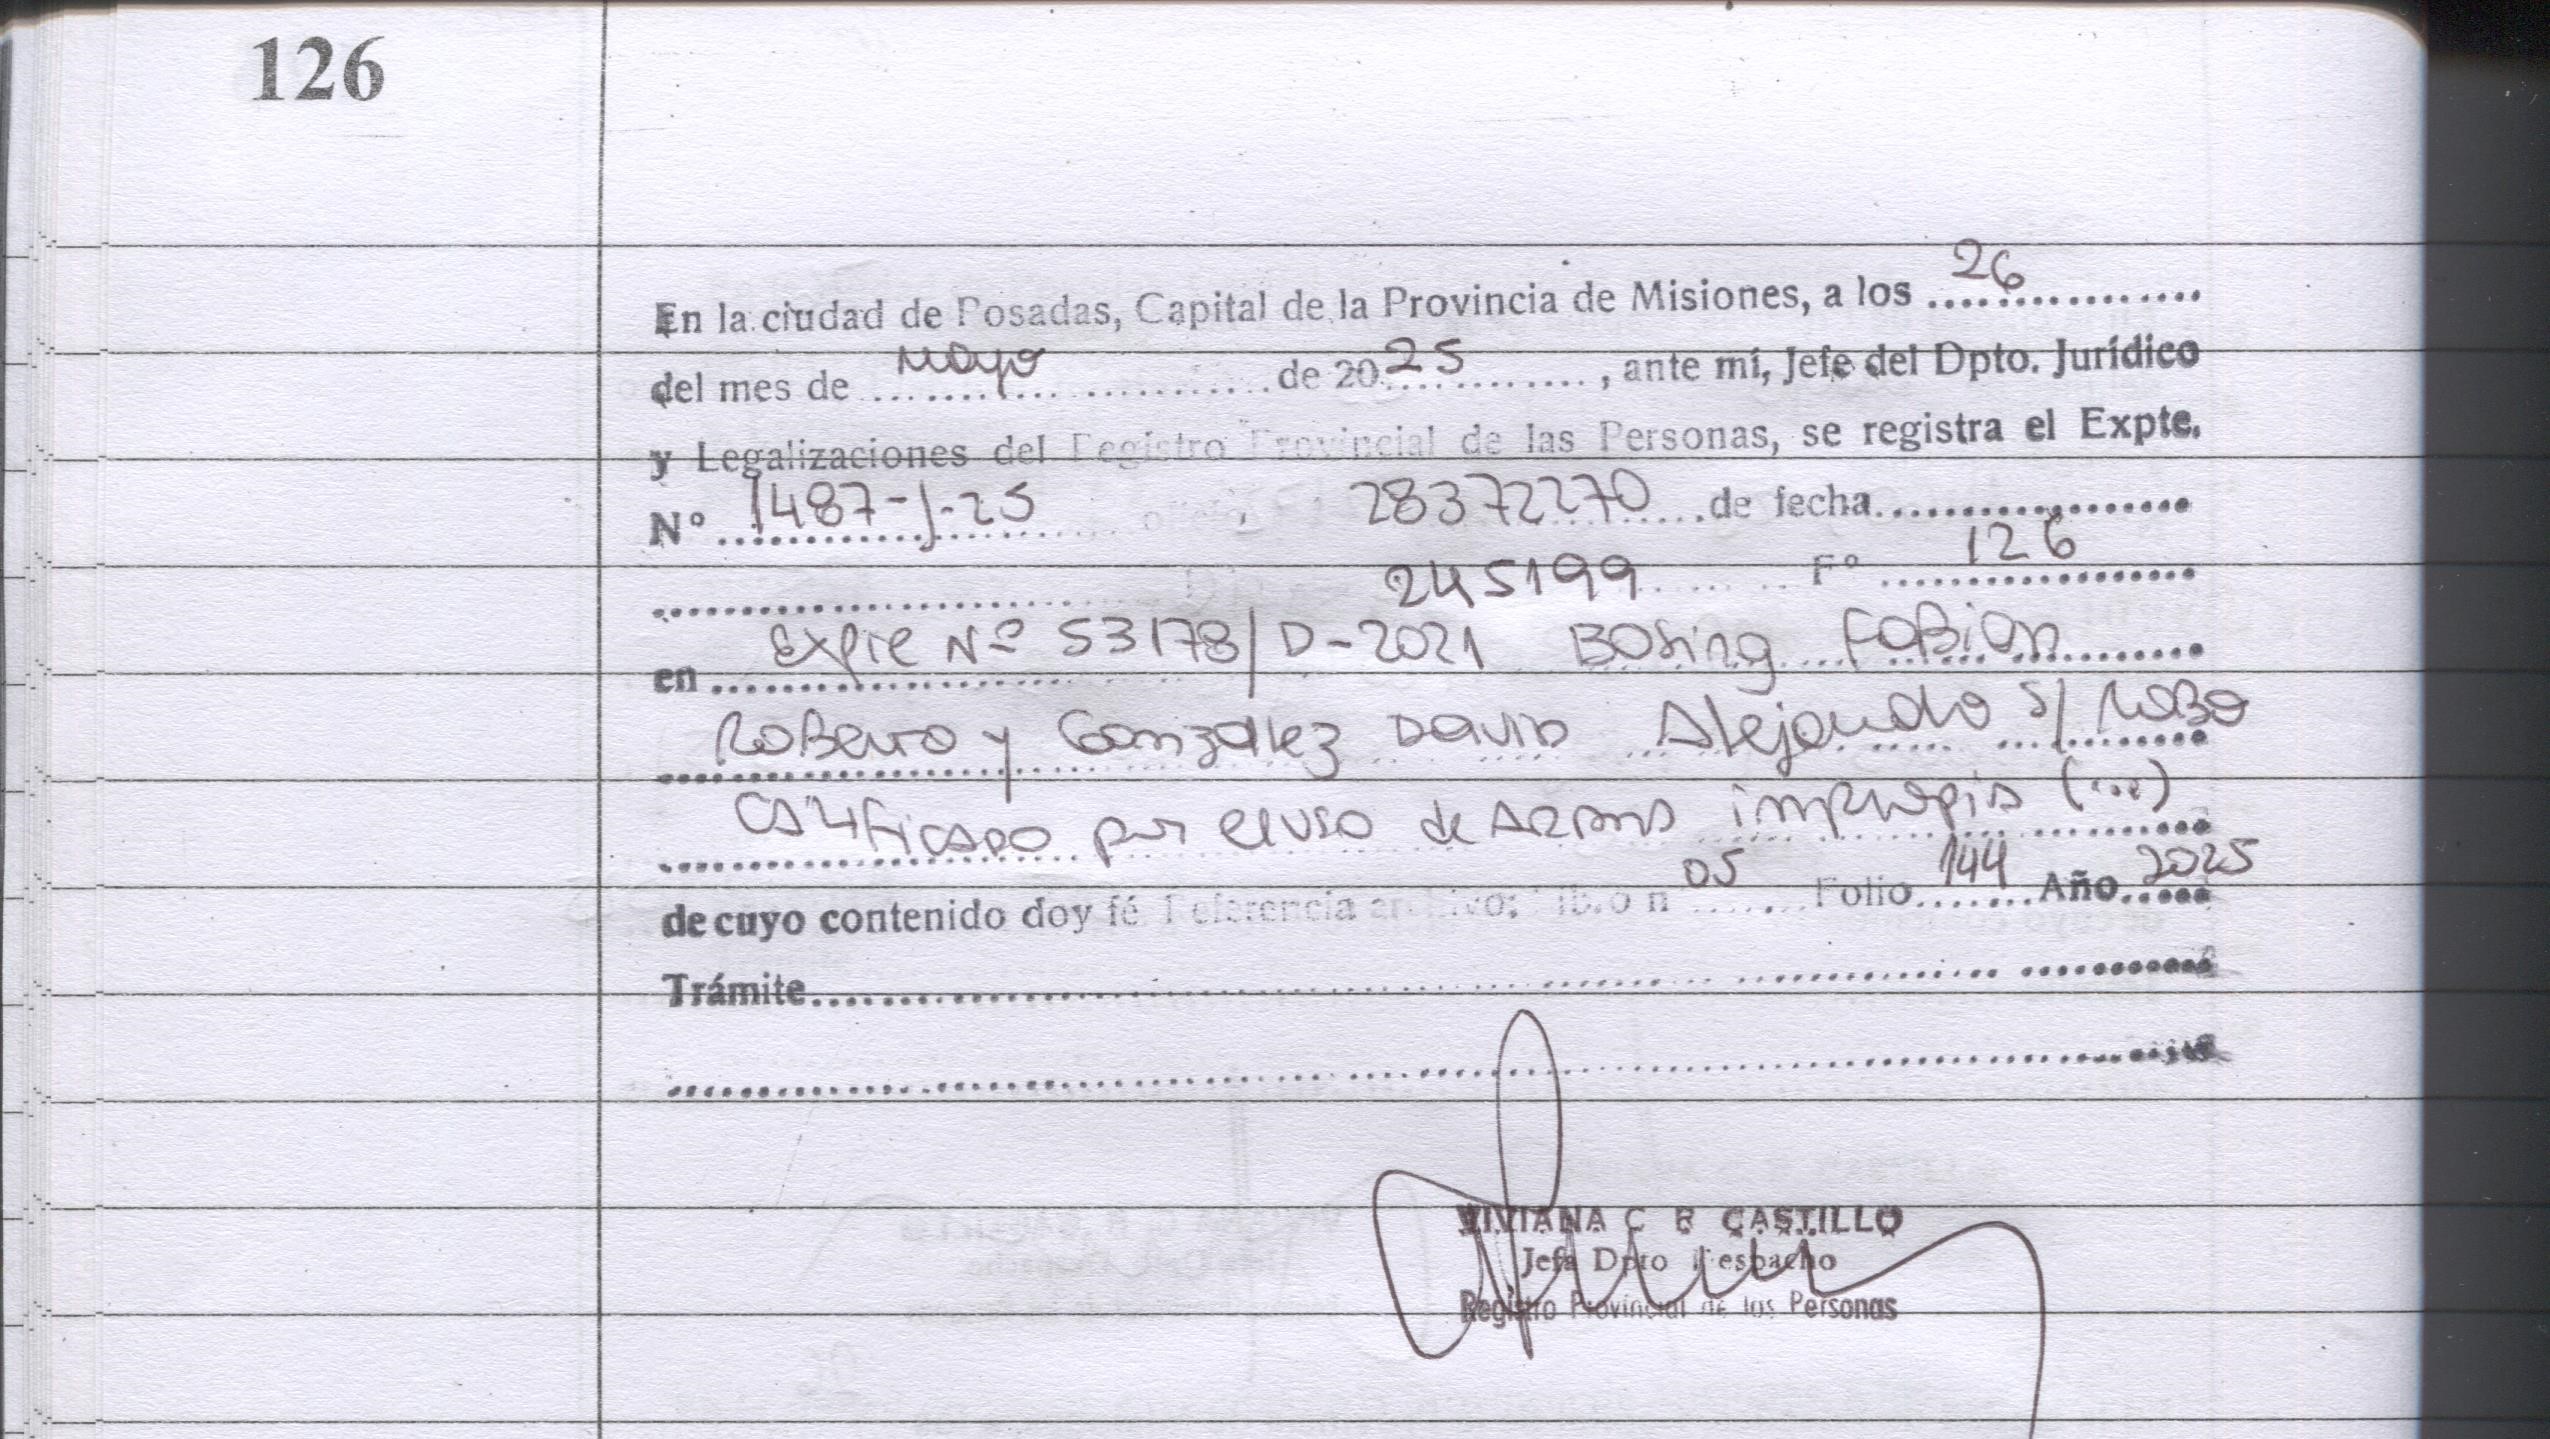 126
En la ciudad de Posadas, Capital de la Provincia de Misiones, a los 26
del mes de Mayo de 2025, ante mí, Jefe del Dpto. Jurídico
y Legalizaciones del Registro Provincial de las Personas, se registra el Expte.
N° 1487-J-25 28372270 de fecha
245199 F° 126
en Expte Nº 53178/D-2021 Bosing Fabian
Roberto y Gonzalez David Alejandro s/ Robo
Calificado por el uso de Armas impropia (...)
de cuyo contenido doy fé Referencia archivo: Libro n 05 Folio 144 Año 2025
Trámite
VIVIANA C R CASTILLO
Jefa Dpto Despacho
Registro Provincial de las Personas